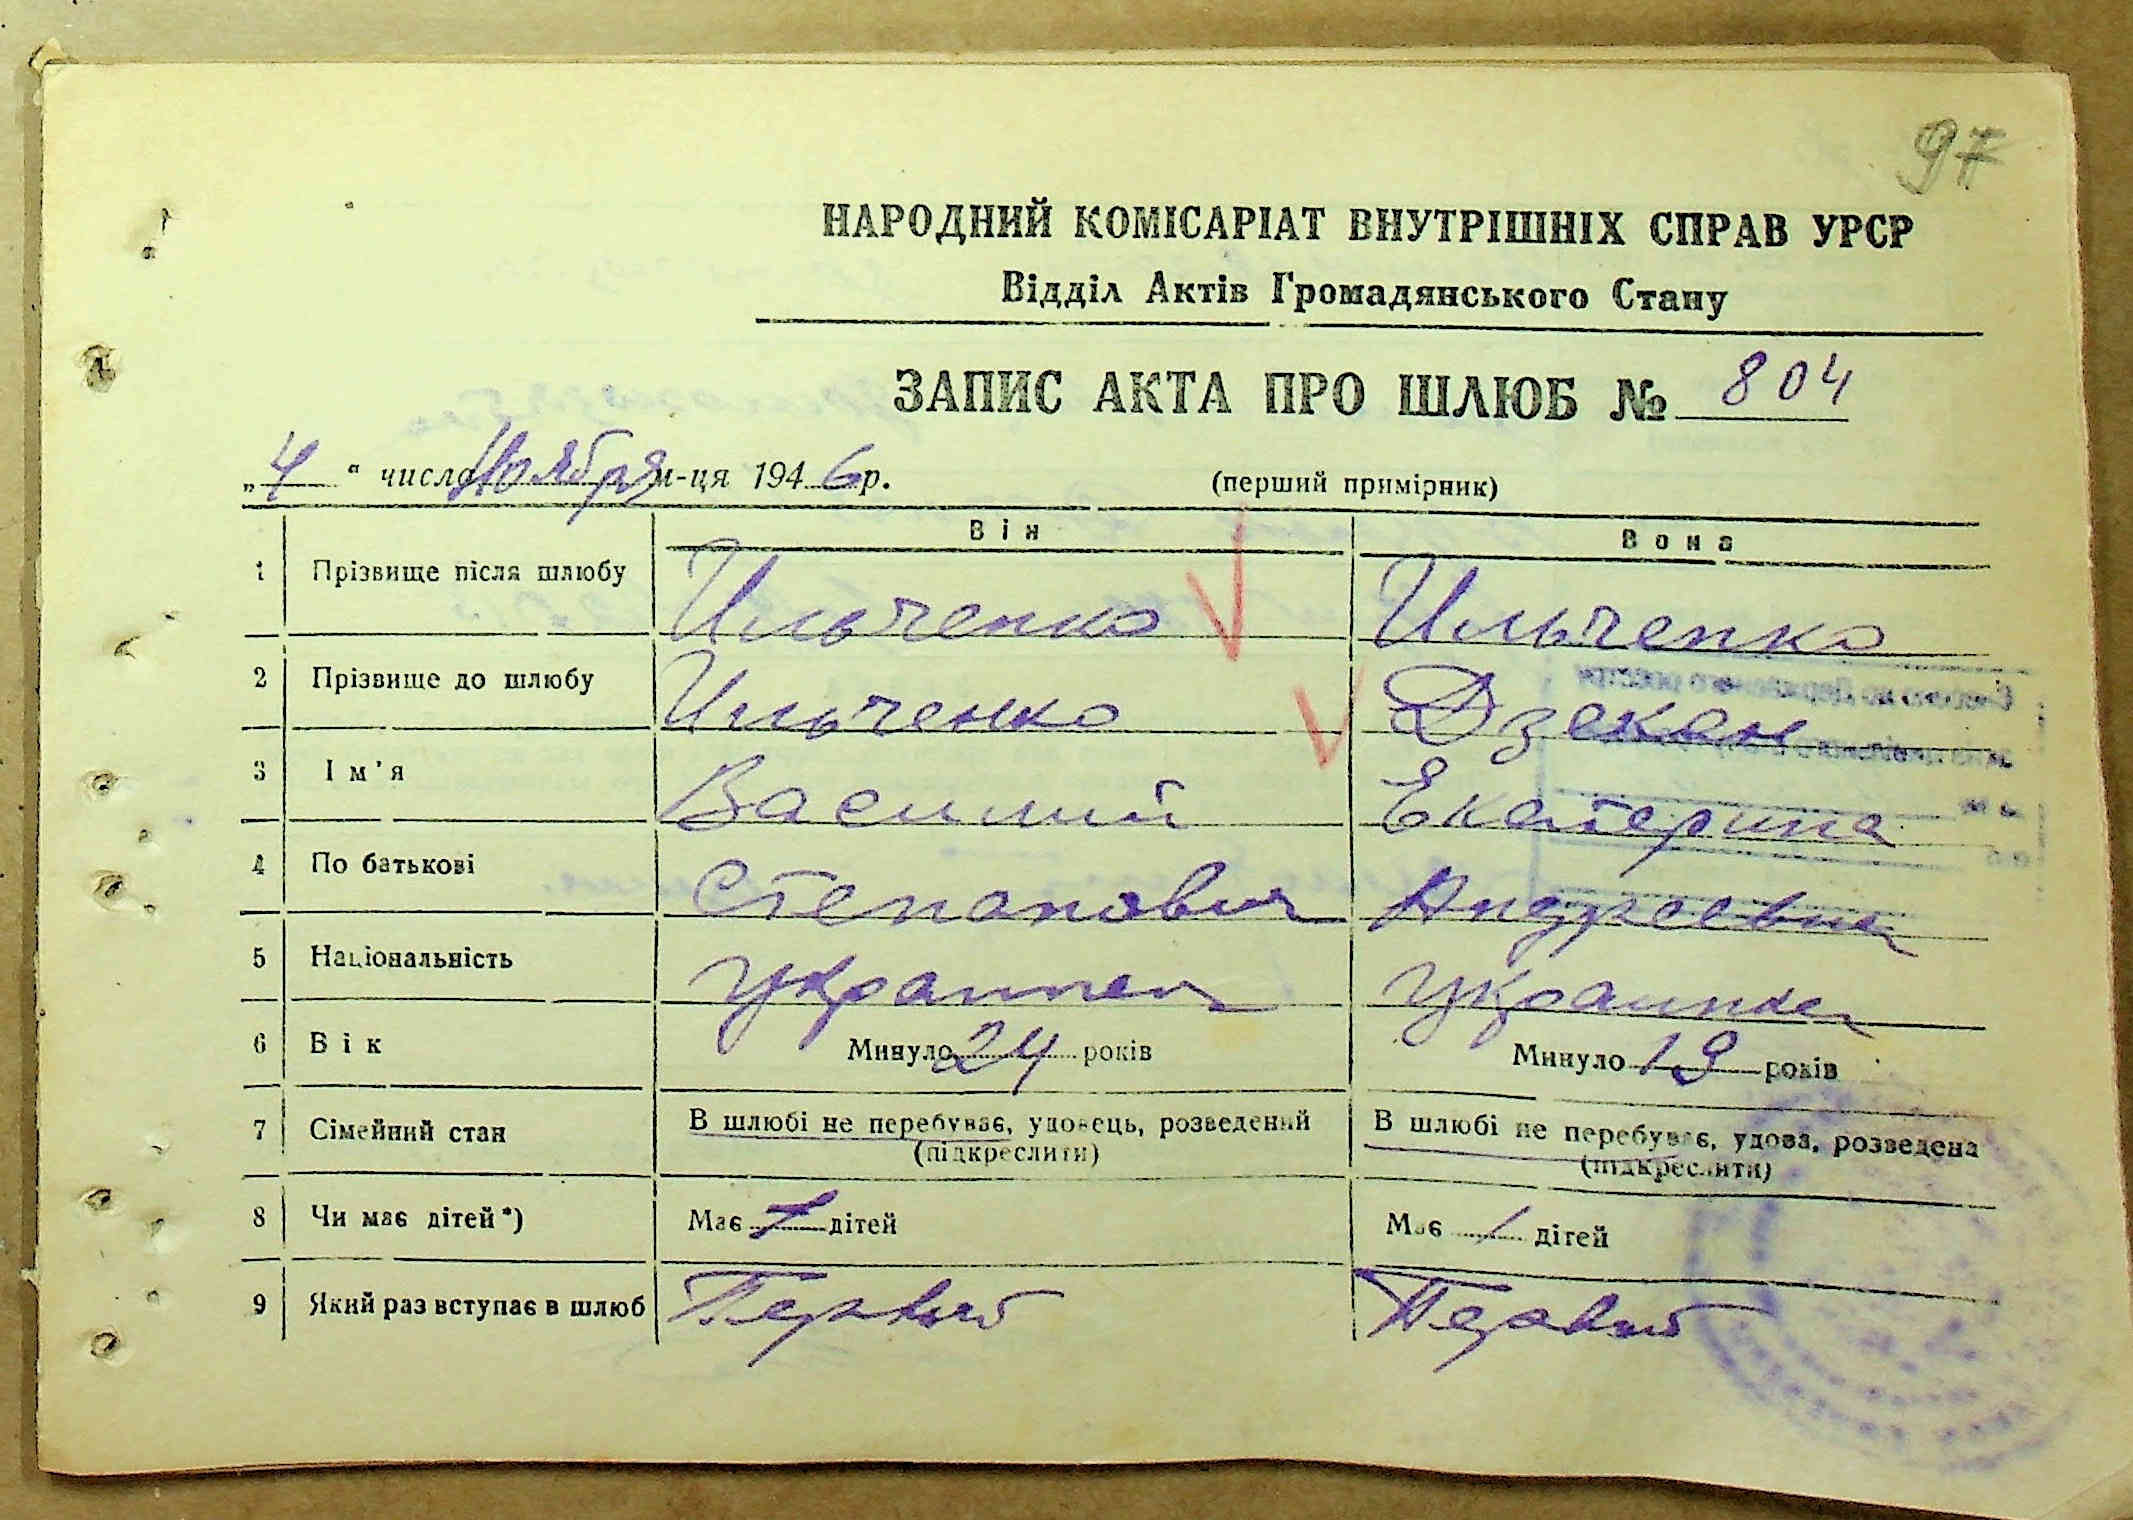 97
НАРОДНИЙ КОМІСАРІАТ ВНУТРІШНІХ СПРАВ УРСР
Відділ Актів Громадянського Стану
ЗАПИС АКТА ПРО ШЛЮБ № 804
„4“ числа Ноября м-ця 1946 р. (перший примірник)
Він Вона
1 Прізвище після шлюбу Ильченко Ильченко
2 Прізвище до шлюбу Ильченко Дзекан
3 Ім'я Василий Екатерина
4 По батькові Степанович Андреевна
5 Національність Украинец Украинка
6 Вік Минуло 24 років Минуло 19 років
7 Сімейний стан В шлюбі не перебуває, удовець, розведений В шлюбі не перебуває, удова, розведена
(підкреслити) (підкреслити)
8 Чи має дітей*) Має дітей Має дітей
9 Який раз вступає в шлюб Первый Первый